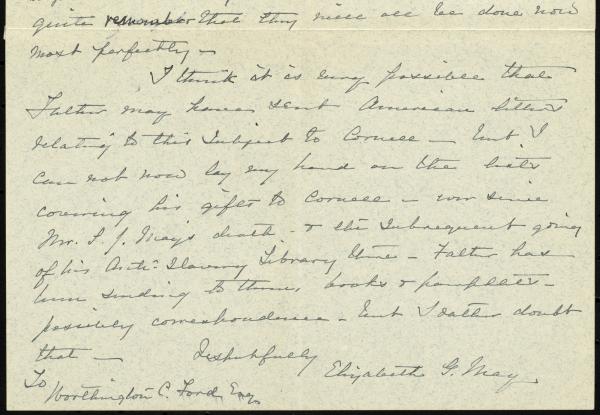 quite remember that they will all be done now
most perfectly –
I think it is very possible that
Father may have sent American letters
relating to this subject to Cornell – but I
can not now lay my hand on the lists
covering his gifts to Cornell – ever since
Mr. S. J. May's death – & the subsequent going
of his Anti-Slavery Library there – Father has
been sending to them, books & pamphlets –
possibly correspondence – but I rather doubt
that –
Respectfully
Elizabeth G. May
To
Worthington C. Ford Esq.